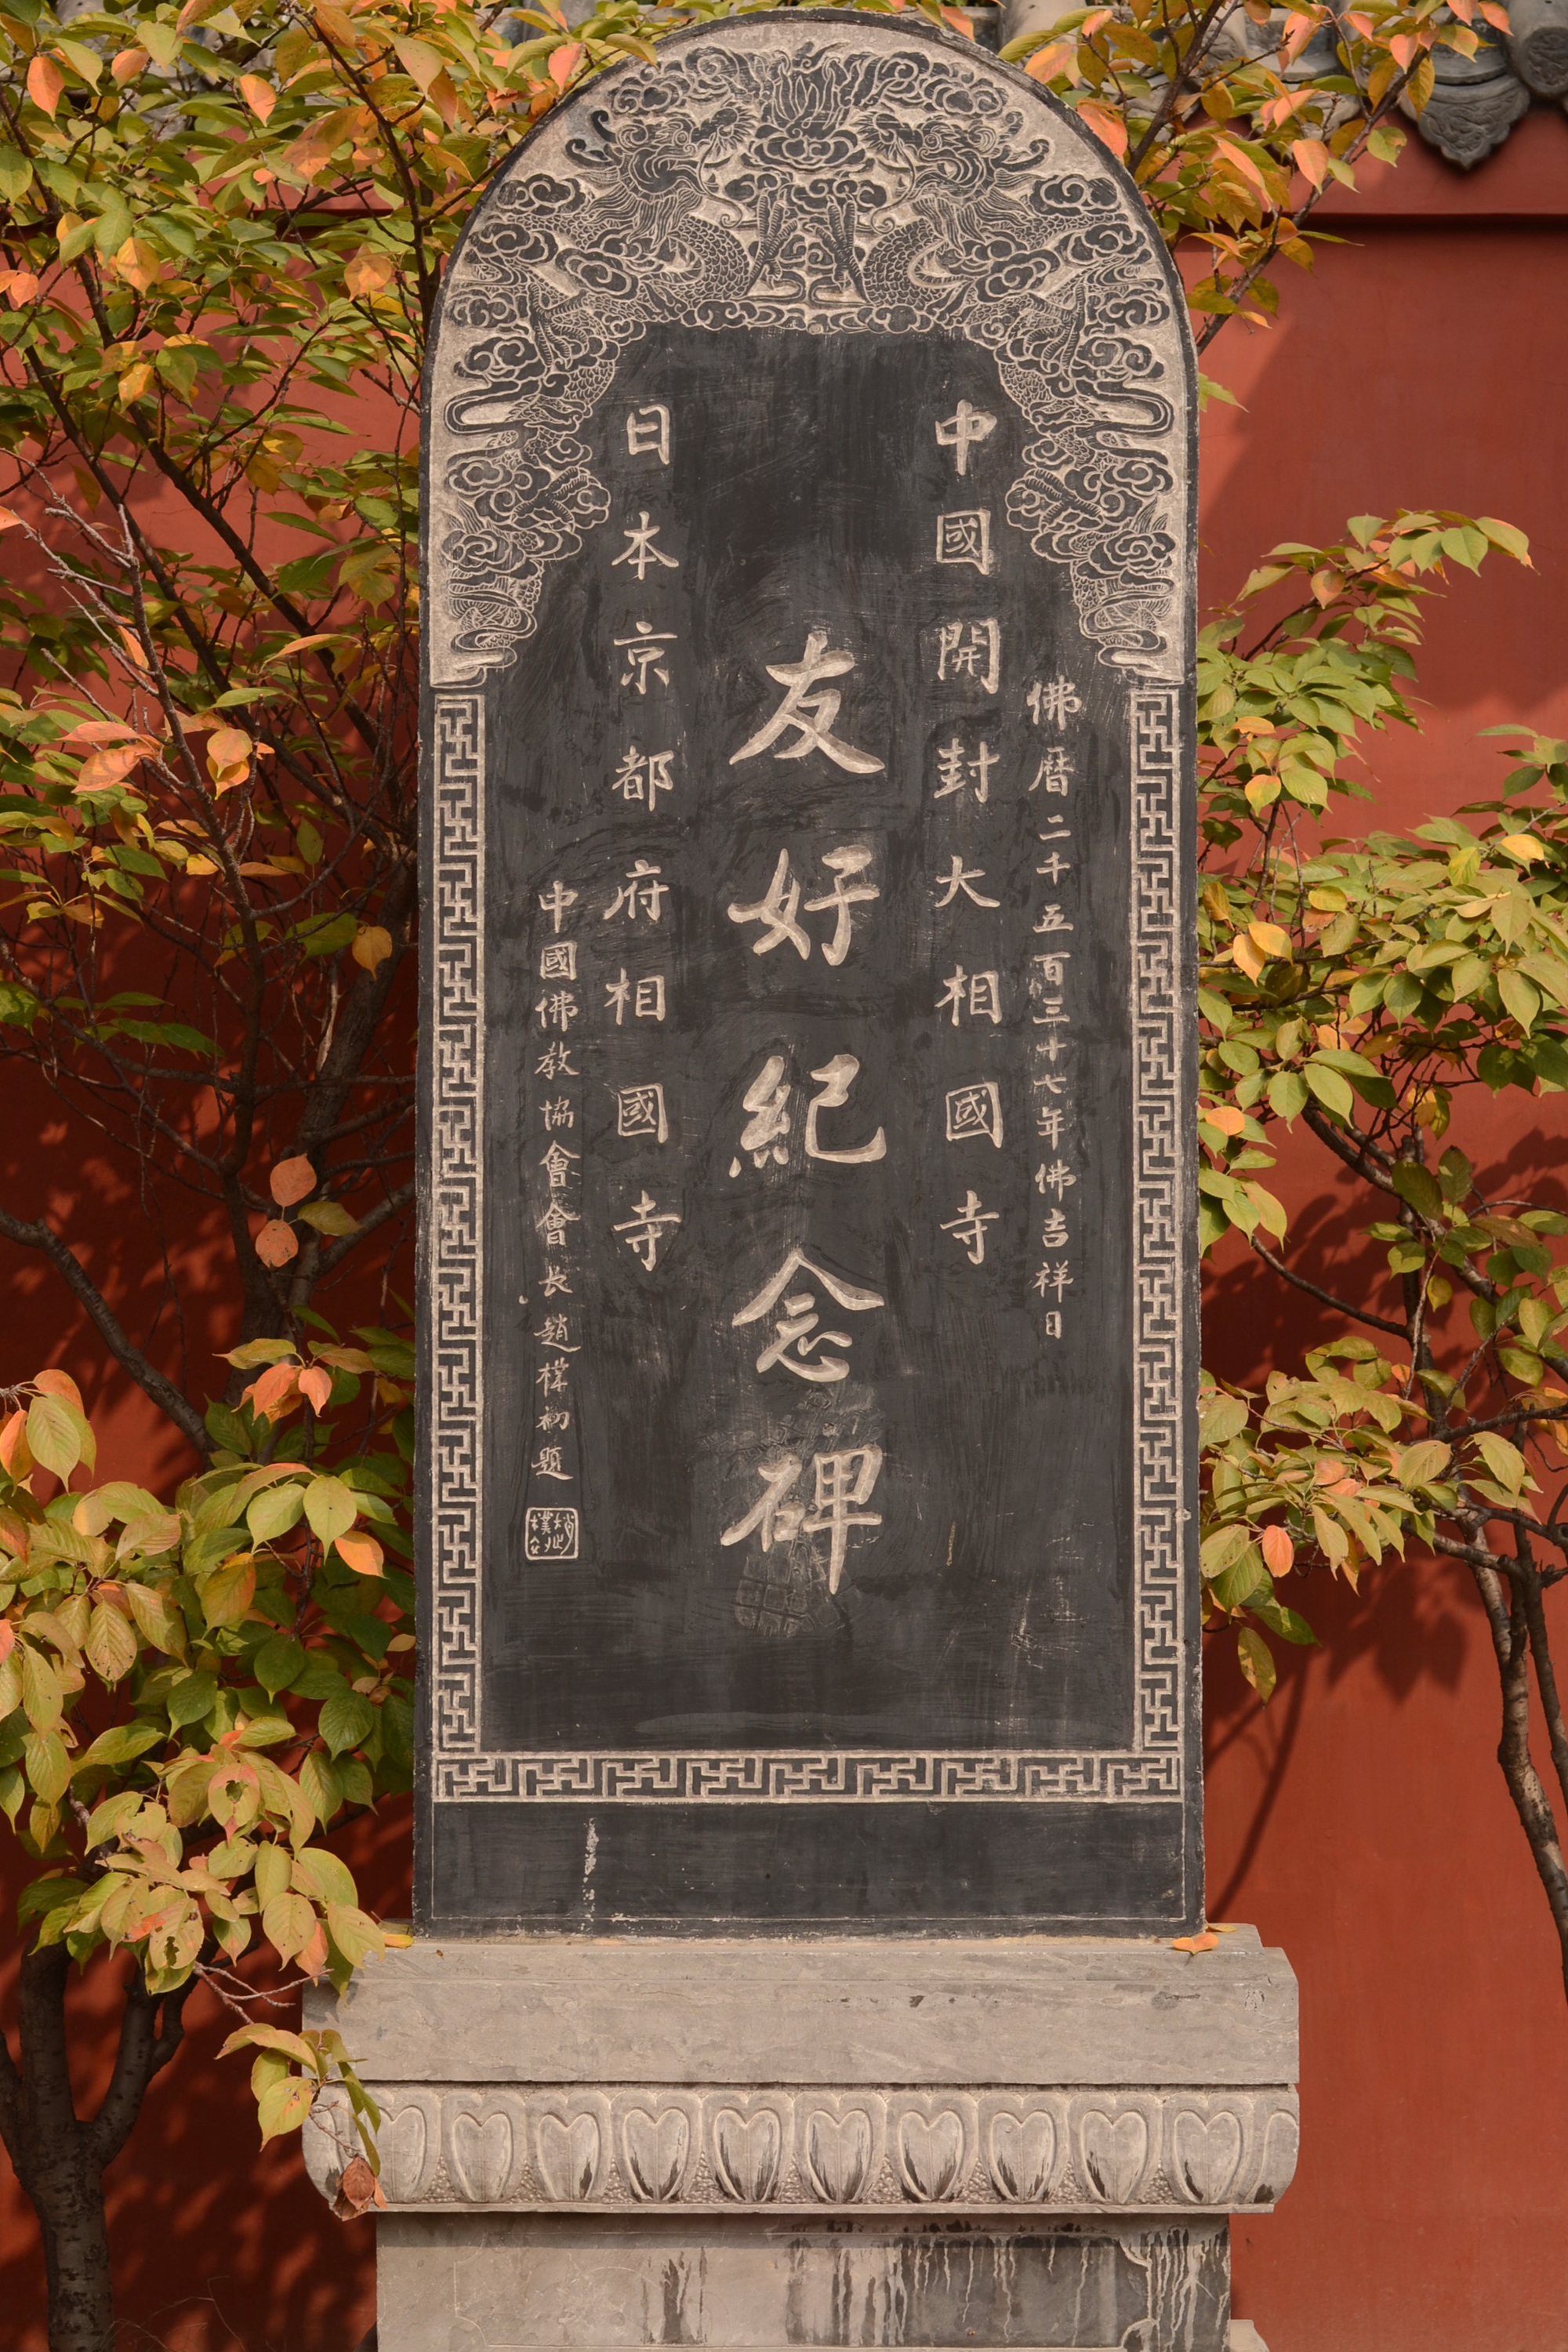 佛曆二千五百三十七年佛吉祥日
中國開封大相國寺
友好紀念碑
日本京都府相國寺
中國佛教協會會長趙樸初題